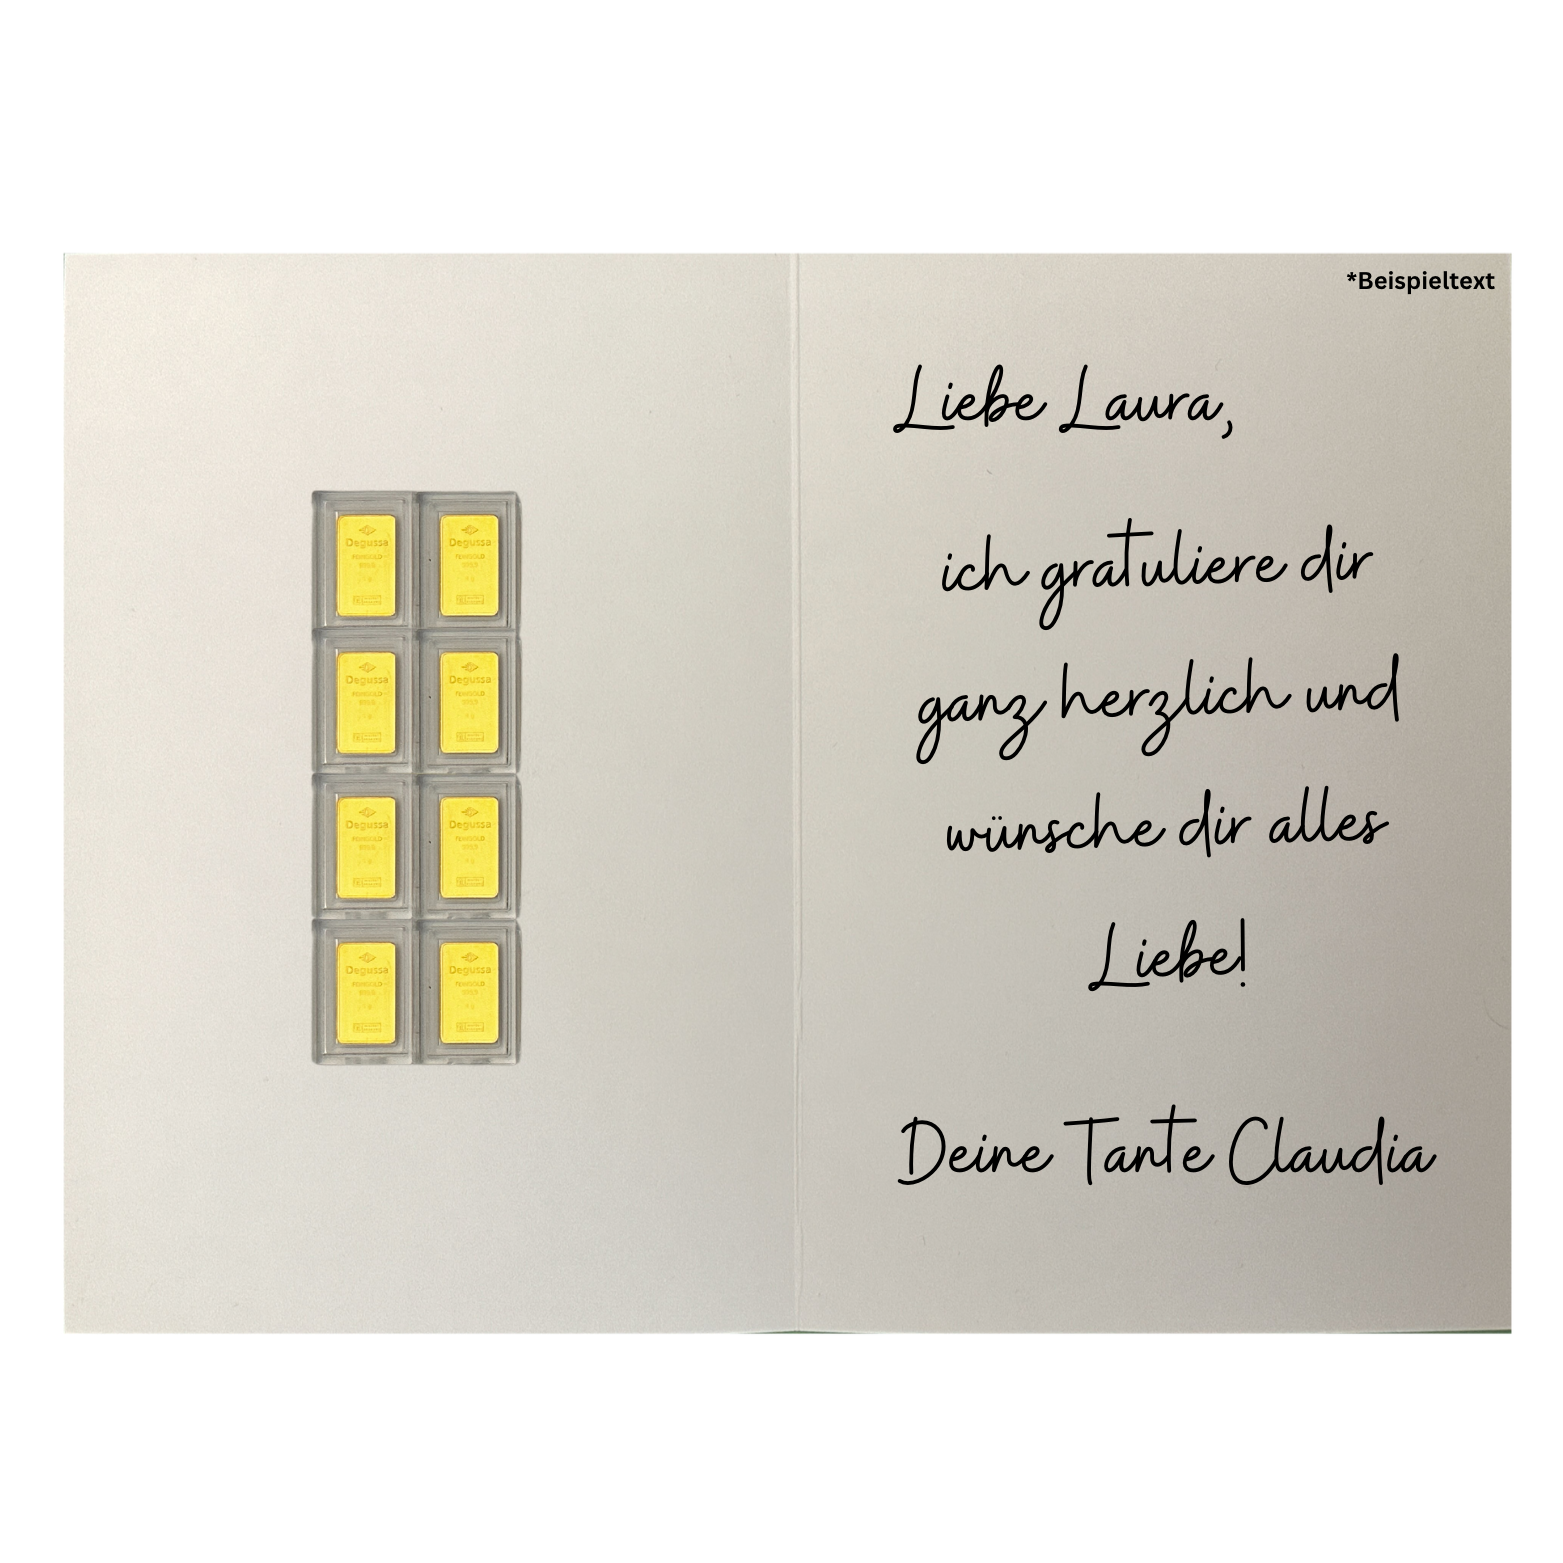 *Beispieltext
Liebe Laura,
ich gratuliere dir
ganz herzlich und
wünsche dir alles
Liebe!
Deine Tante Claudia
Degussa Degussa
FEINGOLD FEINGOLD
999.9 999.9
Degussa Degussa
FEINGOLD FEINGOLD
999.9 999.9
Degussa Degussa
FEINGOLD FEINGOLD
999.9 999.9
Degussa Degussa
FEINGOLD FEINGOLD
999.9 999.9